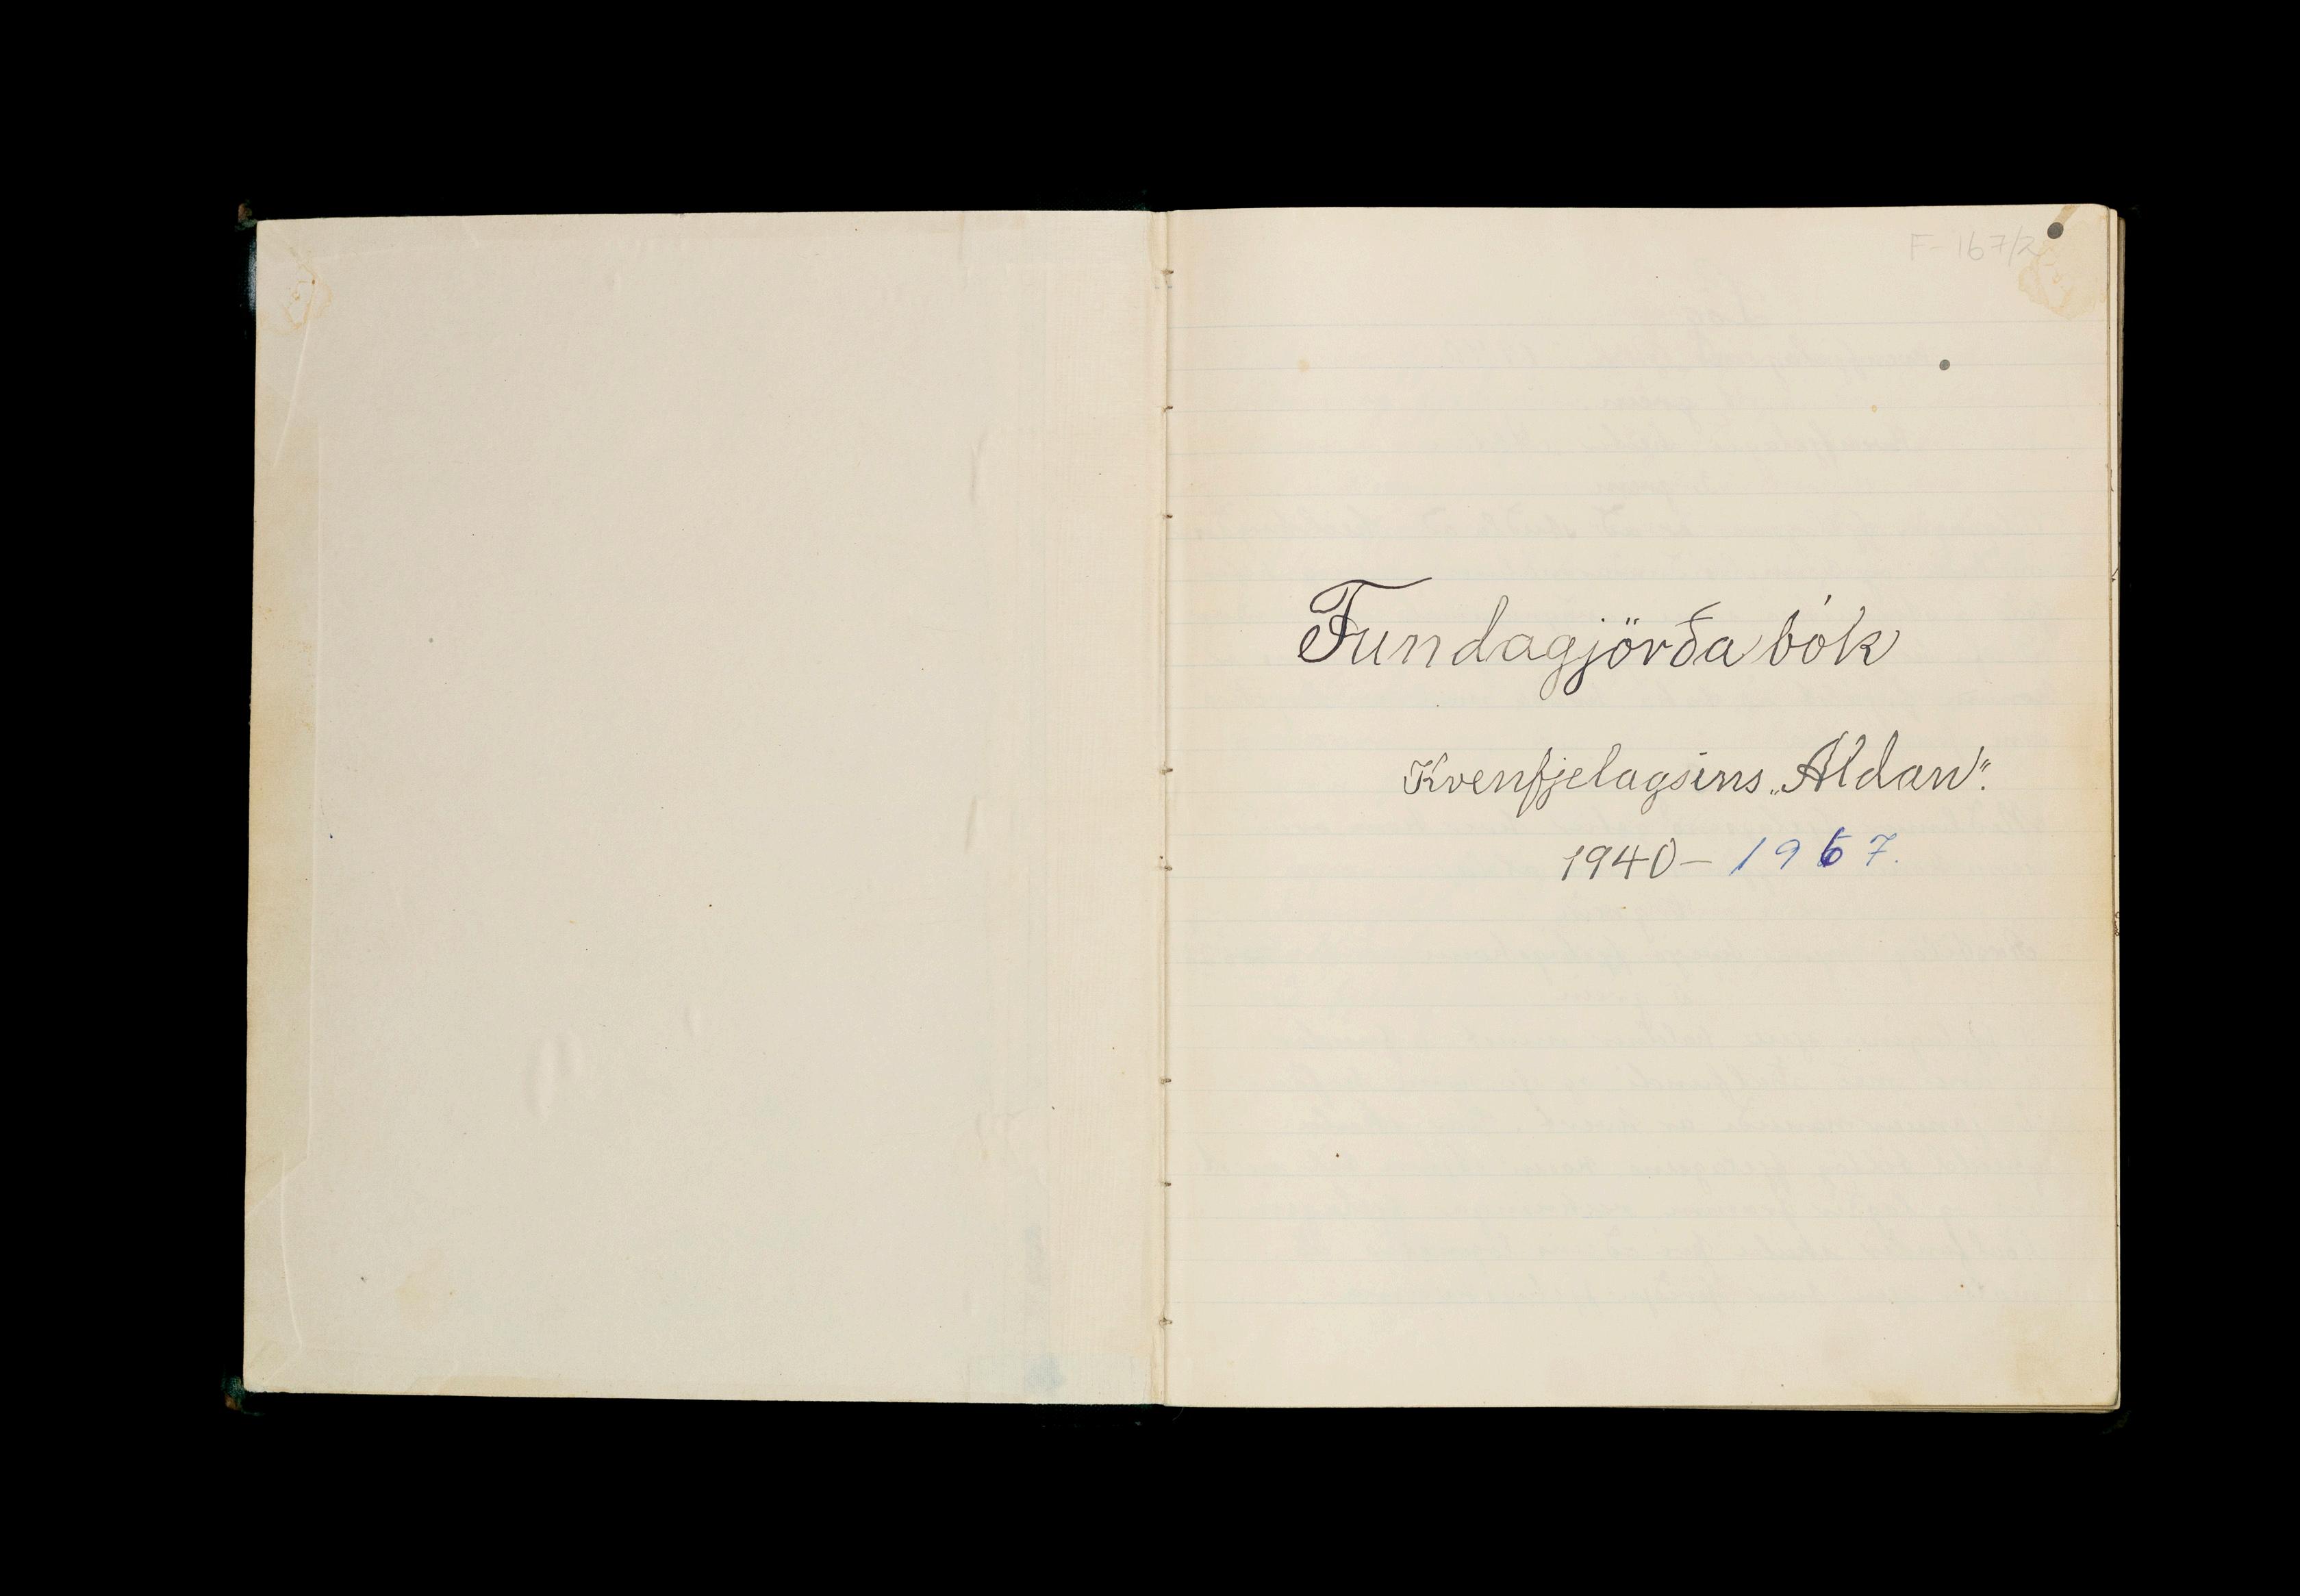 F-167/2
Fundagjörða bók
Kvenfjelagsins „Aldan“.
1940 – 1967.